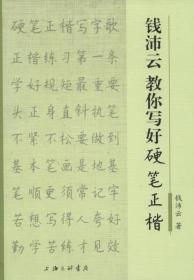 钱沛云教你写好硬笔正楷
钱沛云 著
硬笔正楷写字歌
正楷练习第一条
学好规矩最重要
头正身直执笔
不紧不松要做到
基本笔画是基
笔顺更须常记牢
若想写得人人夸
勤学苦练才见效
上海三联书店